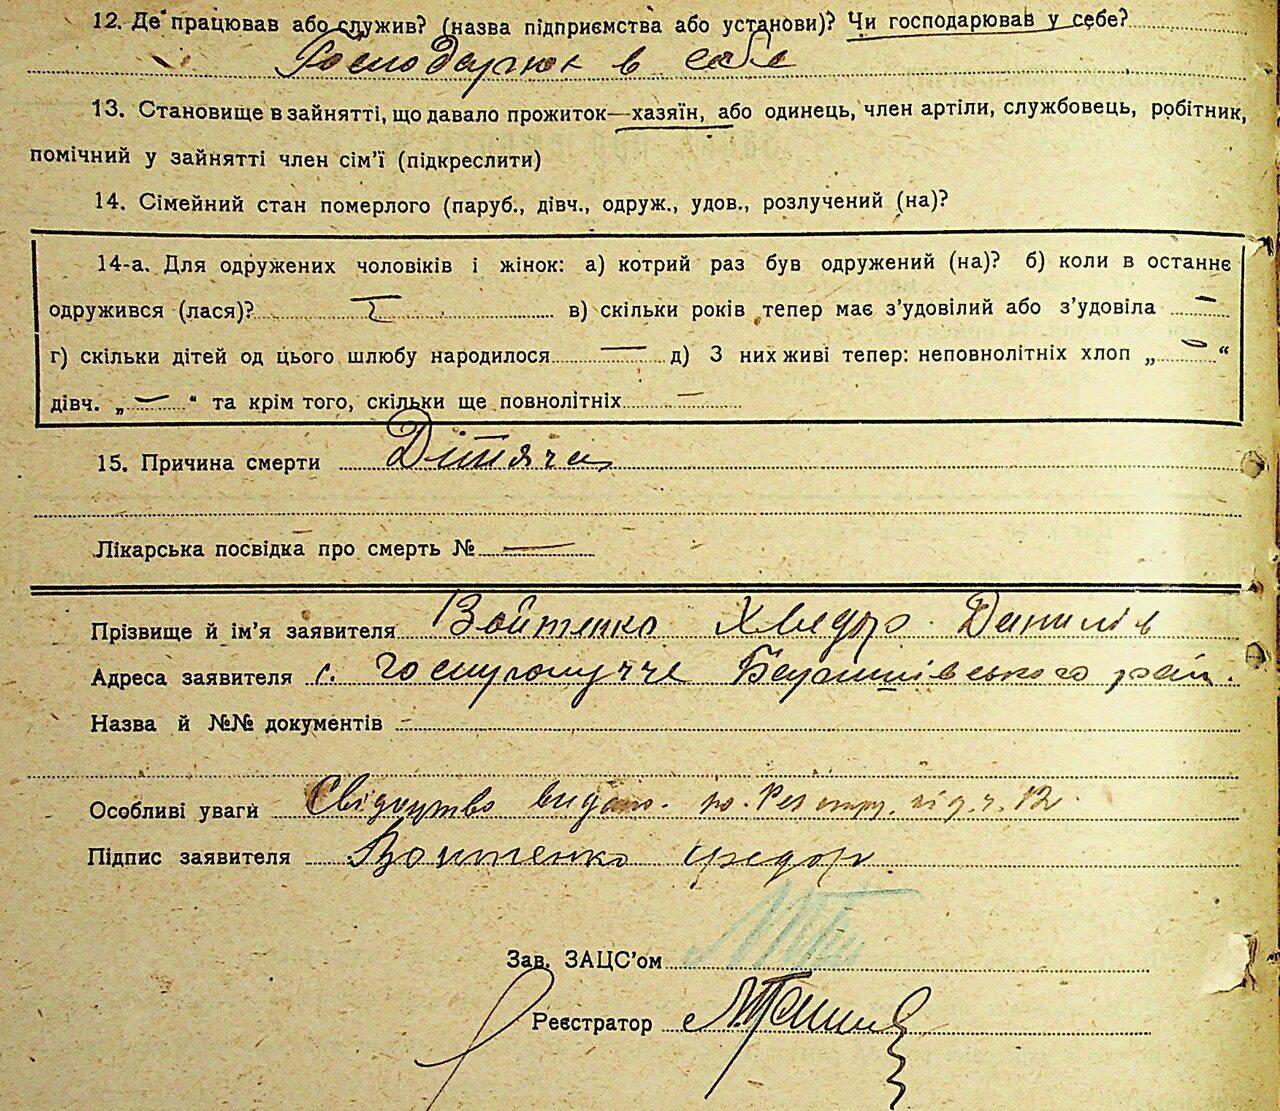 12. Де працював або служив? (назва підприємства або установи)? Чи господарював у себе?
Господарює в себе
13. Становище в зайнятті, що давало прожиток—хазяїн, або одинець, член артіли, службовець, робітник,
помічний у зайнятті член сім'ї (підкреслити)
14. Сімейний стан померлого (паруб., дівч., одруж., удов., розлучений (на)?
14-а. Для одружених чоловіків і жінок: а) котрий раз був одружений (на)? б) коли в останнє
одружився (лася)? I в) скільки років тепер має з'удовілий або з'удовіла —
г) скільки дітей од цього шлюбу народилося — д) З них живі тепер: неповнолітніх хлоп „ — “
дівч. „ — “ та крім того, скільки ще повнолітніх —
15. Причина смерти Дитяча
Лікарська посвідка про смерть № —
Прізвище й ім'я заявителя Войтенко Хведор Данилів
Адреса заявителя с. Баришівського рай.
Назва й №№ документів —
Особливі уваги Свідоцтво видано по Реєстру під ч. 12
Підпис заявителя Войтенко Федор
Зав. ЗАЦС'ом
Реєстратор